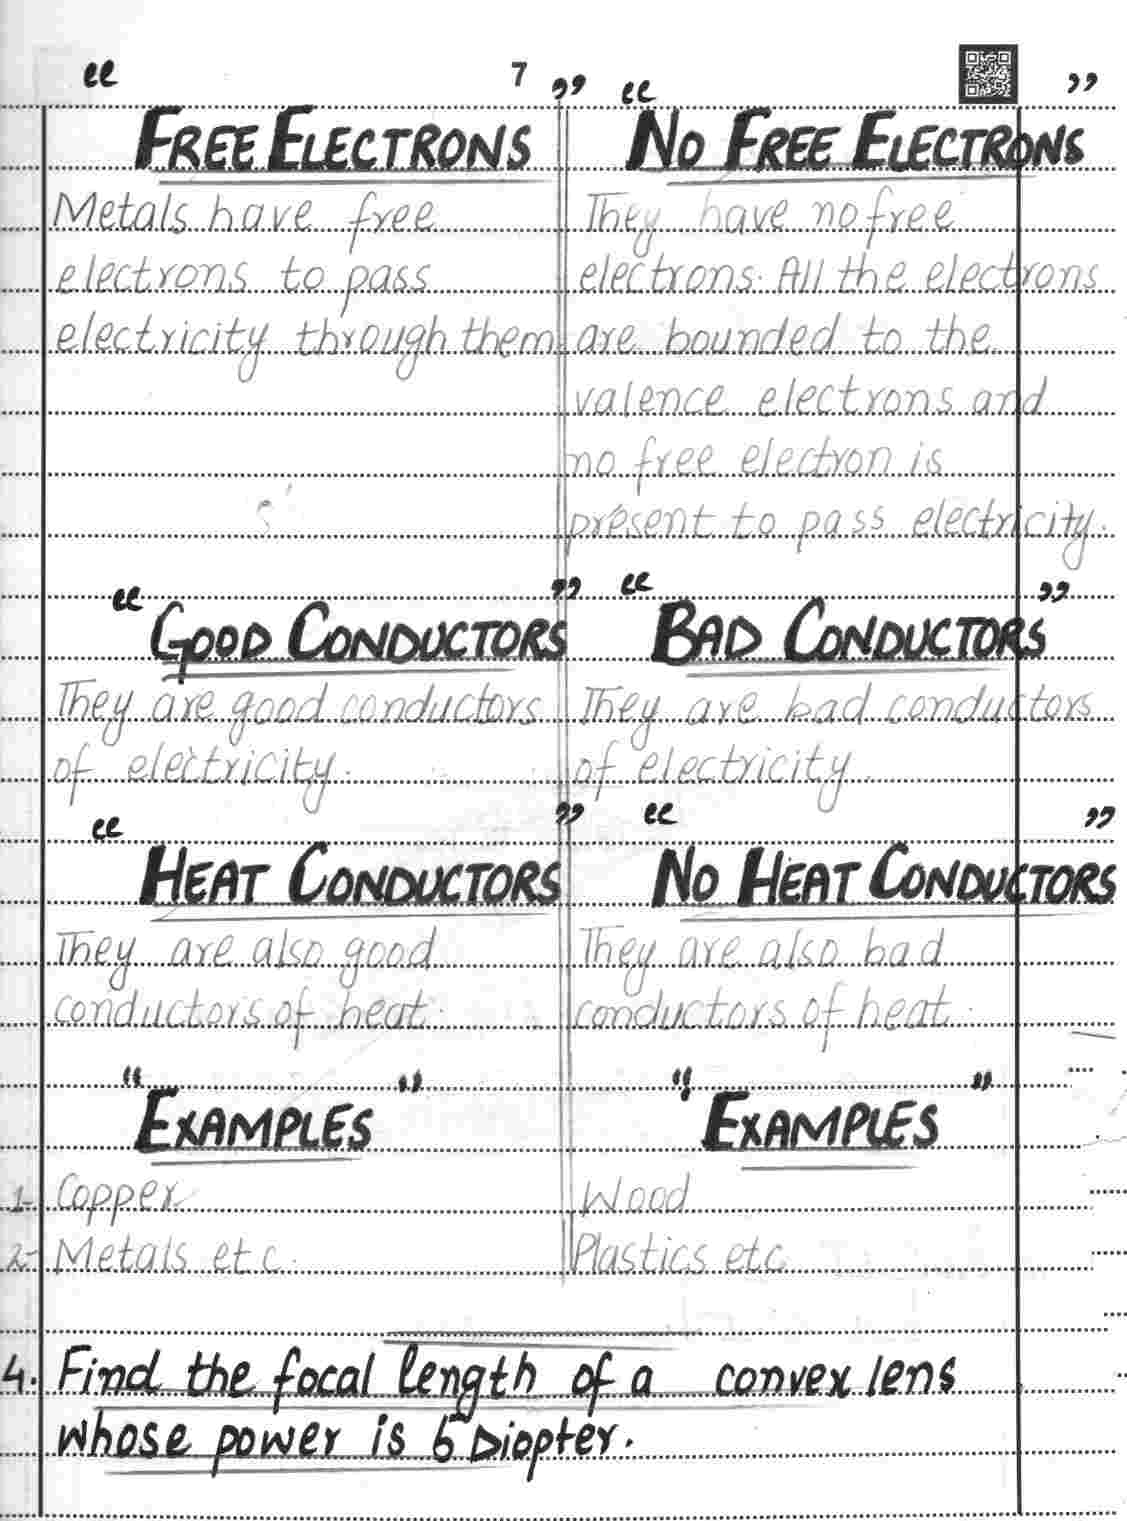 7
“FREE ELECTRONS”
Metals have free
electrons to pass
electricity through them
“NO FREE ELECTRONS”
They have no free
electrons. All the electrons
are bounded to the
valence electrons and
no free electron is
present to pass electricity.
“GOOD CONDUCTORS”
They are good conductors
of electricity.
“BAD CONDUCTORS”
They are bad conductors
of electricity.
“HEAT CONDUCTORS”
They are also good
conductors of heat.
“NO HEAT CONDUCTORS”
They are also bad
conductors of heat.
“EXAMPLES”
1- Copper
2- Metals etc.
“EXAMPLES”
Wood
Plastics etc
4. Find the focal length of a convex lens
whose power is 5 Diopter.